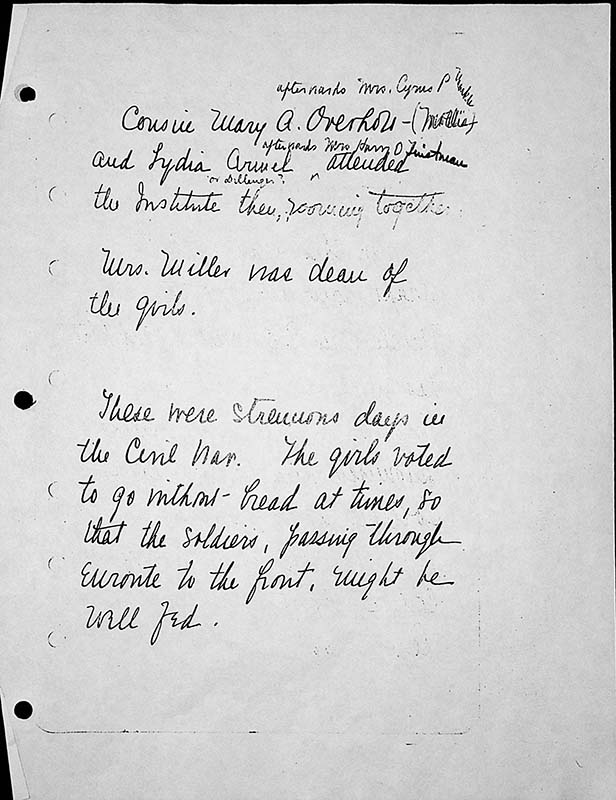 afterwards Mrs. Cyrus P
Cousin Mary A. Overholt - (Mollie)
afterwards Mrs Harry O. Tinstman
and Lydia Armel ^ attended
or Dillinger?
the Institute then, rooming together.
Mrs. Miller was dean of
the girls.
These were strenuous days in
the Civil War. The girls voted
to go without bread at times, so
that the soldiers, passing through
enroute to the front, might be
well fed.